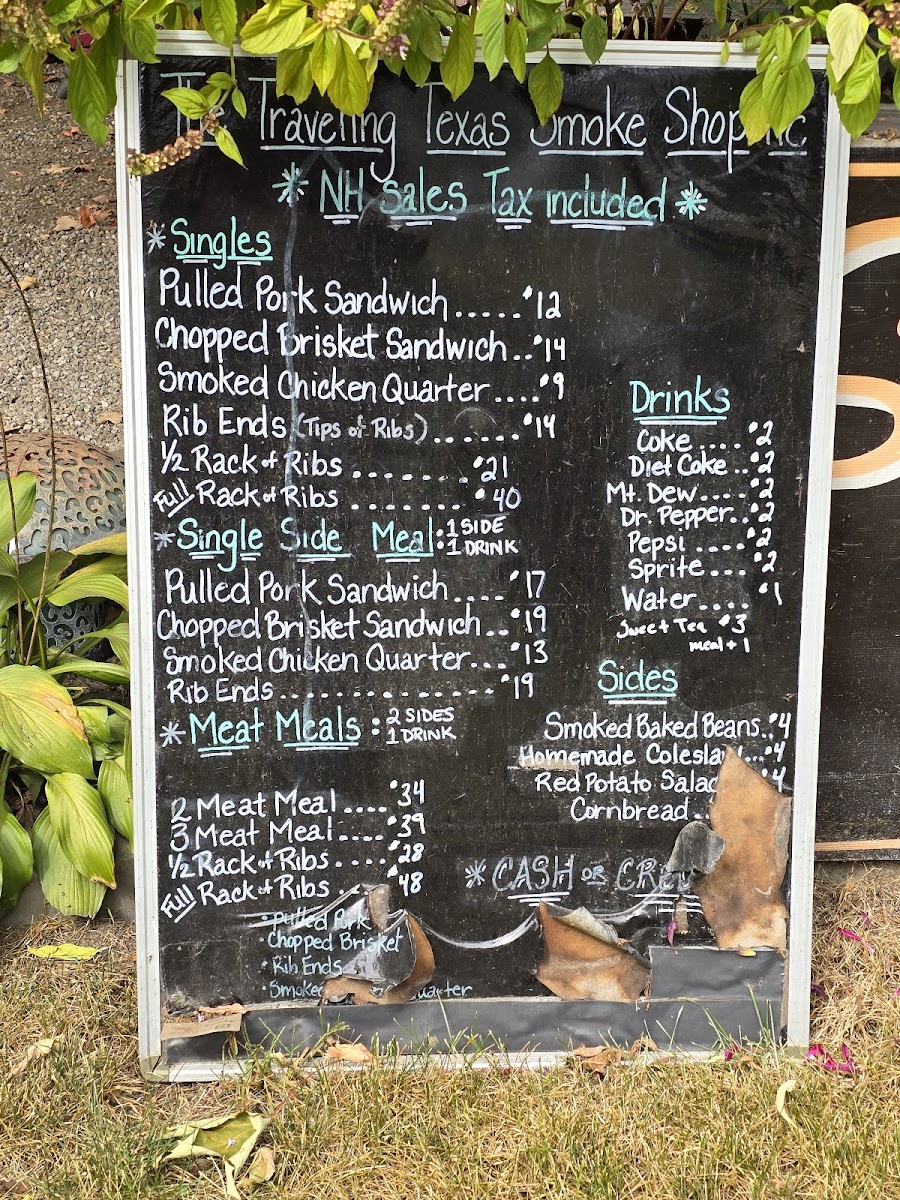 The Traveling Texas Smoke Shop
* NH Sales Tax included *
* Singles
Pulled Pork Sandwich ..... $12
Chopped Brisket Sandwich .. $14
Smoked Chicken Quarter .... $9
Rib Ends (Tips of Ribs) ...... $14
1/2 Rack of Ribs ....... $21
Full Rack of Ribs ....... $40
* Single Side Meal: 1 SIDE
1 DRINK
Pulled Pork Sandwich .... $17
Chopped Brisket Sandwich .. $19
Smoked Chicken Quarter ... $13
Rib Ends ................ $19
* Meat Meals: 2 SIDES
1 DRINK
2 Meat Meal .... $34
3 Meat Meal .... $39
1/2 Rack of Ribs .... $28
Full Rack of Ribs . $48
• Pulled Pork
• Chopped Brisket
• Rib Ends
• Smoked Quarter
Drinks
Coke .... $2
Diet Coke .. $2
Mt. Dew .... $2
Dr. Pepper .. $2
Pepsi .... $2
Sprite ... $2
Water .... $1
Sweet Tea $3
meal + 1
Sides
Smoked Baked Beans .. $4
Homemade Coleslaw ... $4
Red Potato Salad $4
Cornbread ..
* CASH or